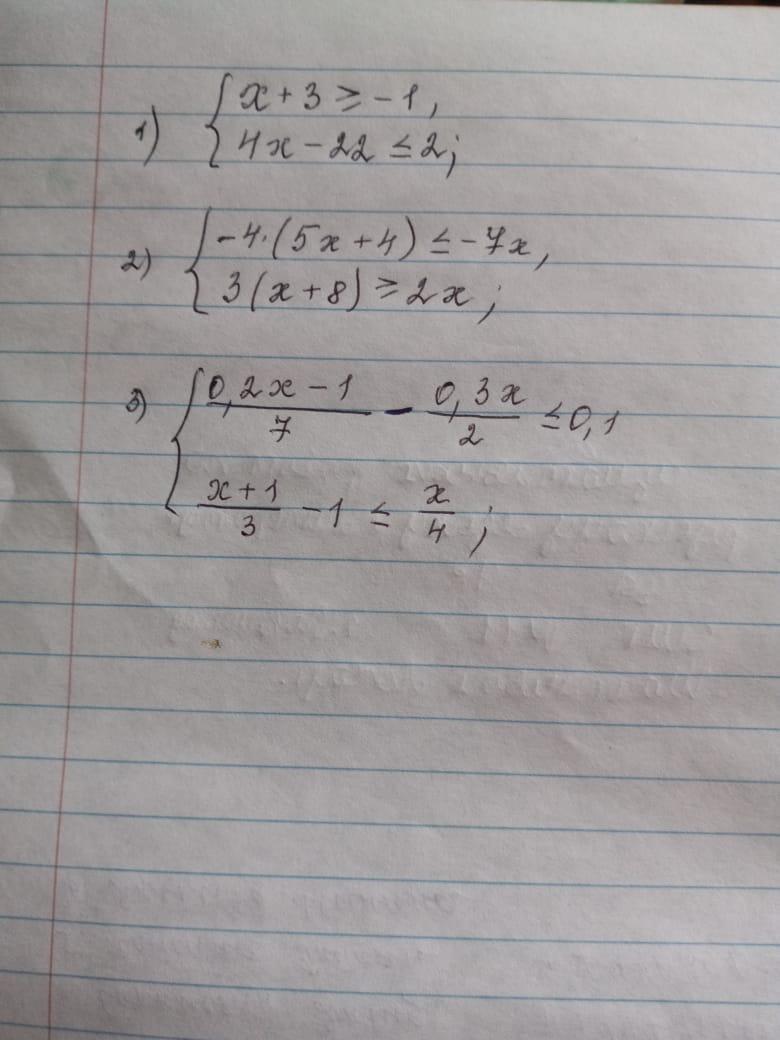 1) { x + 3 ≥ -1,
4x - 22 ≤ 2;
2) { -4·(5x + 4) ≤ -7x,
3(x + 8) ≥ 2x;
3) { (0,2x - 1)/7 - 0,3x/2 ≤ 0,1
(x + 1)/3 - 1 ≤ x/4;